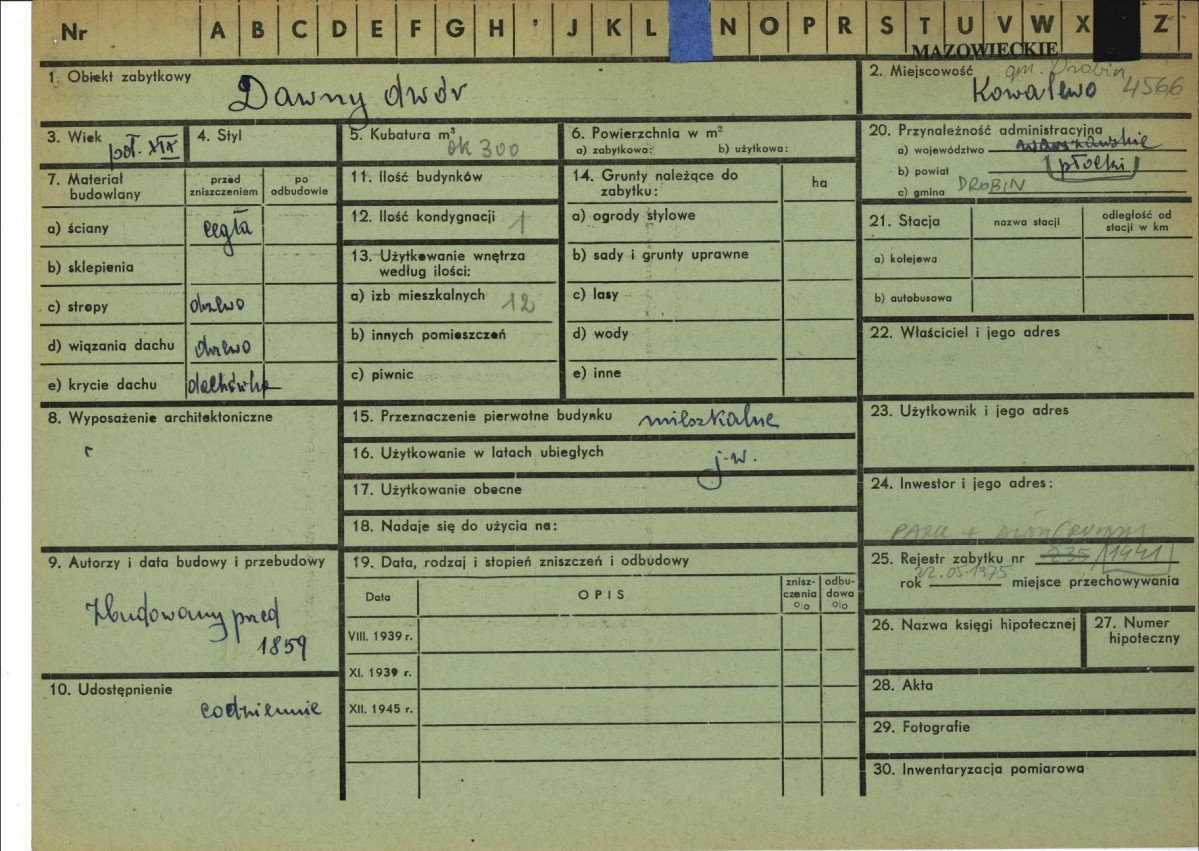 Nr A B C D E F G H ' J K L N O P R S T U V W X Z
MAZOWIECKIE
1. Obiekt zabytkowy
Dawny dwór
2. Miejscowość gm. Drobin
Kowalewo 4566
3. Wiek poł. XIX
4. Styl
5. Kubatura m³
ok 300
6. Powierzchnia w m²
a) zabytkowa: b) użytkowa:
20. Przynależność administracyjna
a) województwo warszawskie
b) powiat płocki
c) gmina DROBIN
7. Materiał budowlany
przed zniszczeniem
po odbudowie
a) ściany cegła
b) sklepienia
c) stropy drzewo
d) wiązania dachu drzewo
e) krycie dachu dachówka
11. Ilość budynków
12. Ilość kondygnacji 1
13. Użytkowanie wnętrza
według ilości:
a) izb mieszkalnych 12
b) innych pomieszczeń
c) piwnic
14. Grunty należące do
zabytku:
ha
a) ogrody stylowe
b) sady i grunty uprawne
c) lasy
d) wody
e) inne
21. Stacja
nazwa stacji
odległość od
stacji w km
a) kolejowa
b) autobusowa
22. Właściciel i jego adres
8. Wyposażenie architektoniczne
15. Przeznaczenie pierwotne budynku mieszkalne
16. Użytkowanie w latach ubiegłych j.w.
17. Użytkowanie obecne
18. Nadaje się do użycia na:
23. Użytkownik i jego adres
24. Inwestor i jego adres:
PARK +
9. Autorzy i data budowy i przebudowy
Zbudowany przed
1859
19. Data, rodzaj i stopień zniszczeń i odbudowy
Data
OPIS
znisz-
czenia
%
odbu-
dowa
%
VIII. 1939 r.
XI. 1939 r.
XII. 1945 r.
25. Rejestr zabytku nr 235/1441
rok 22.05.1975 miejsce przechowywania
26. Nazwa księgi hipotecznej
27. Numer
hipoteczny
10. Udostępnienie
codziennie
28. Akta
29. Fotografie
30. Inwentaryzacja pomiarowa